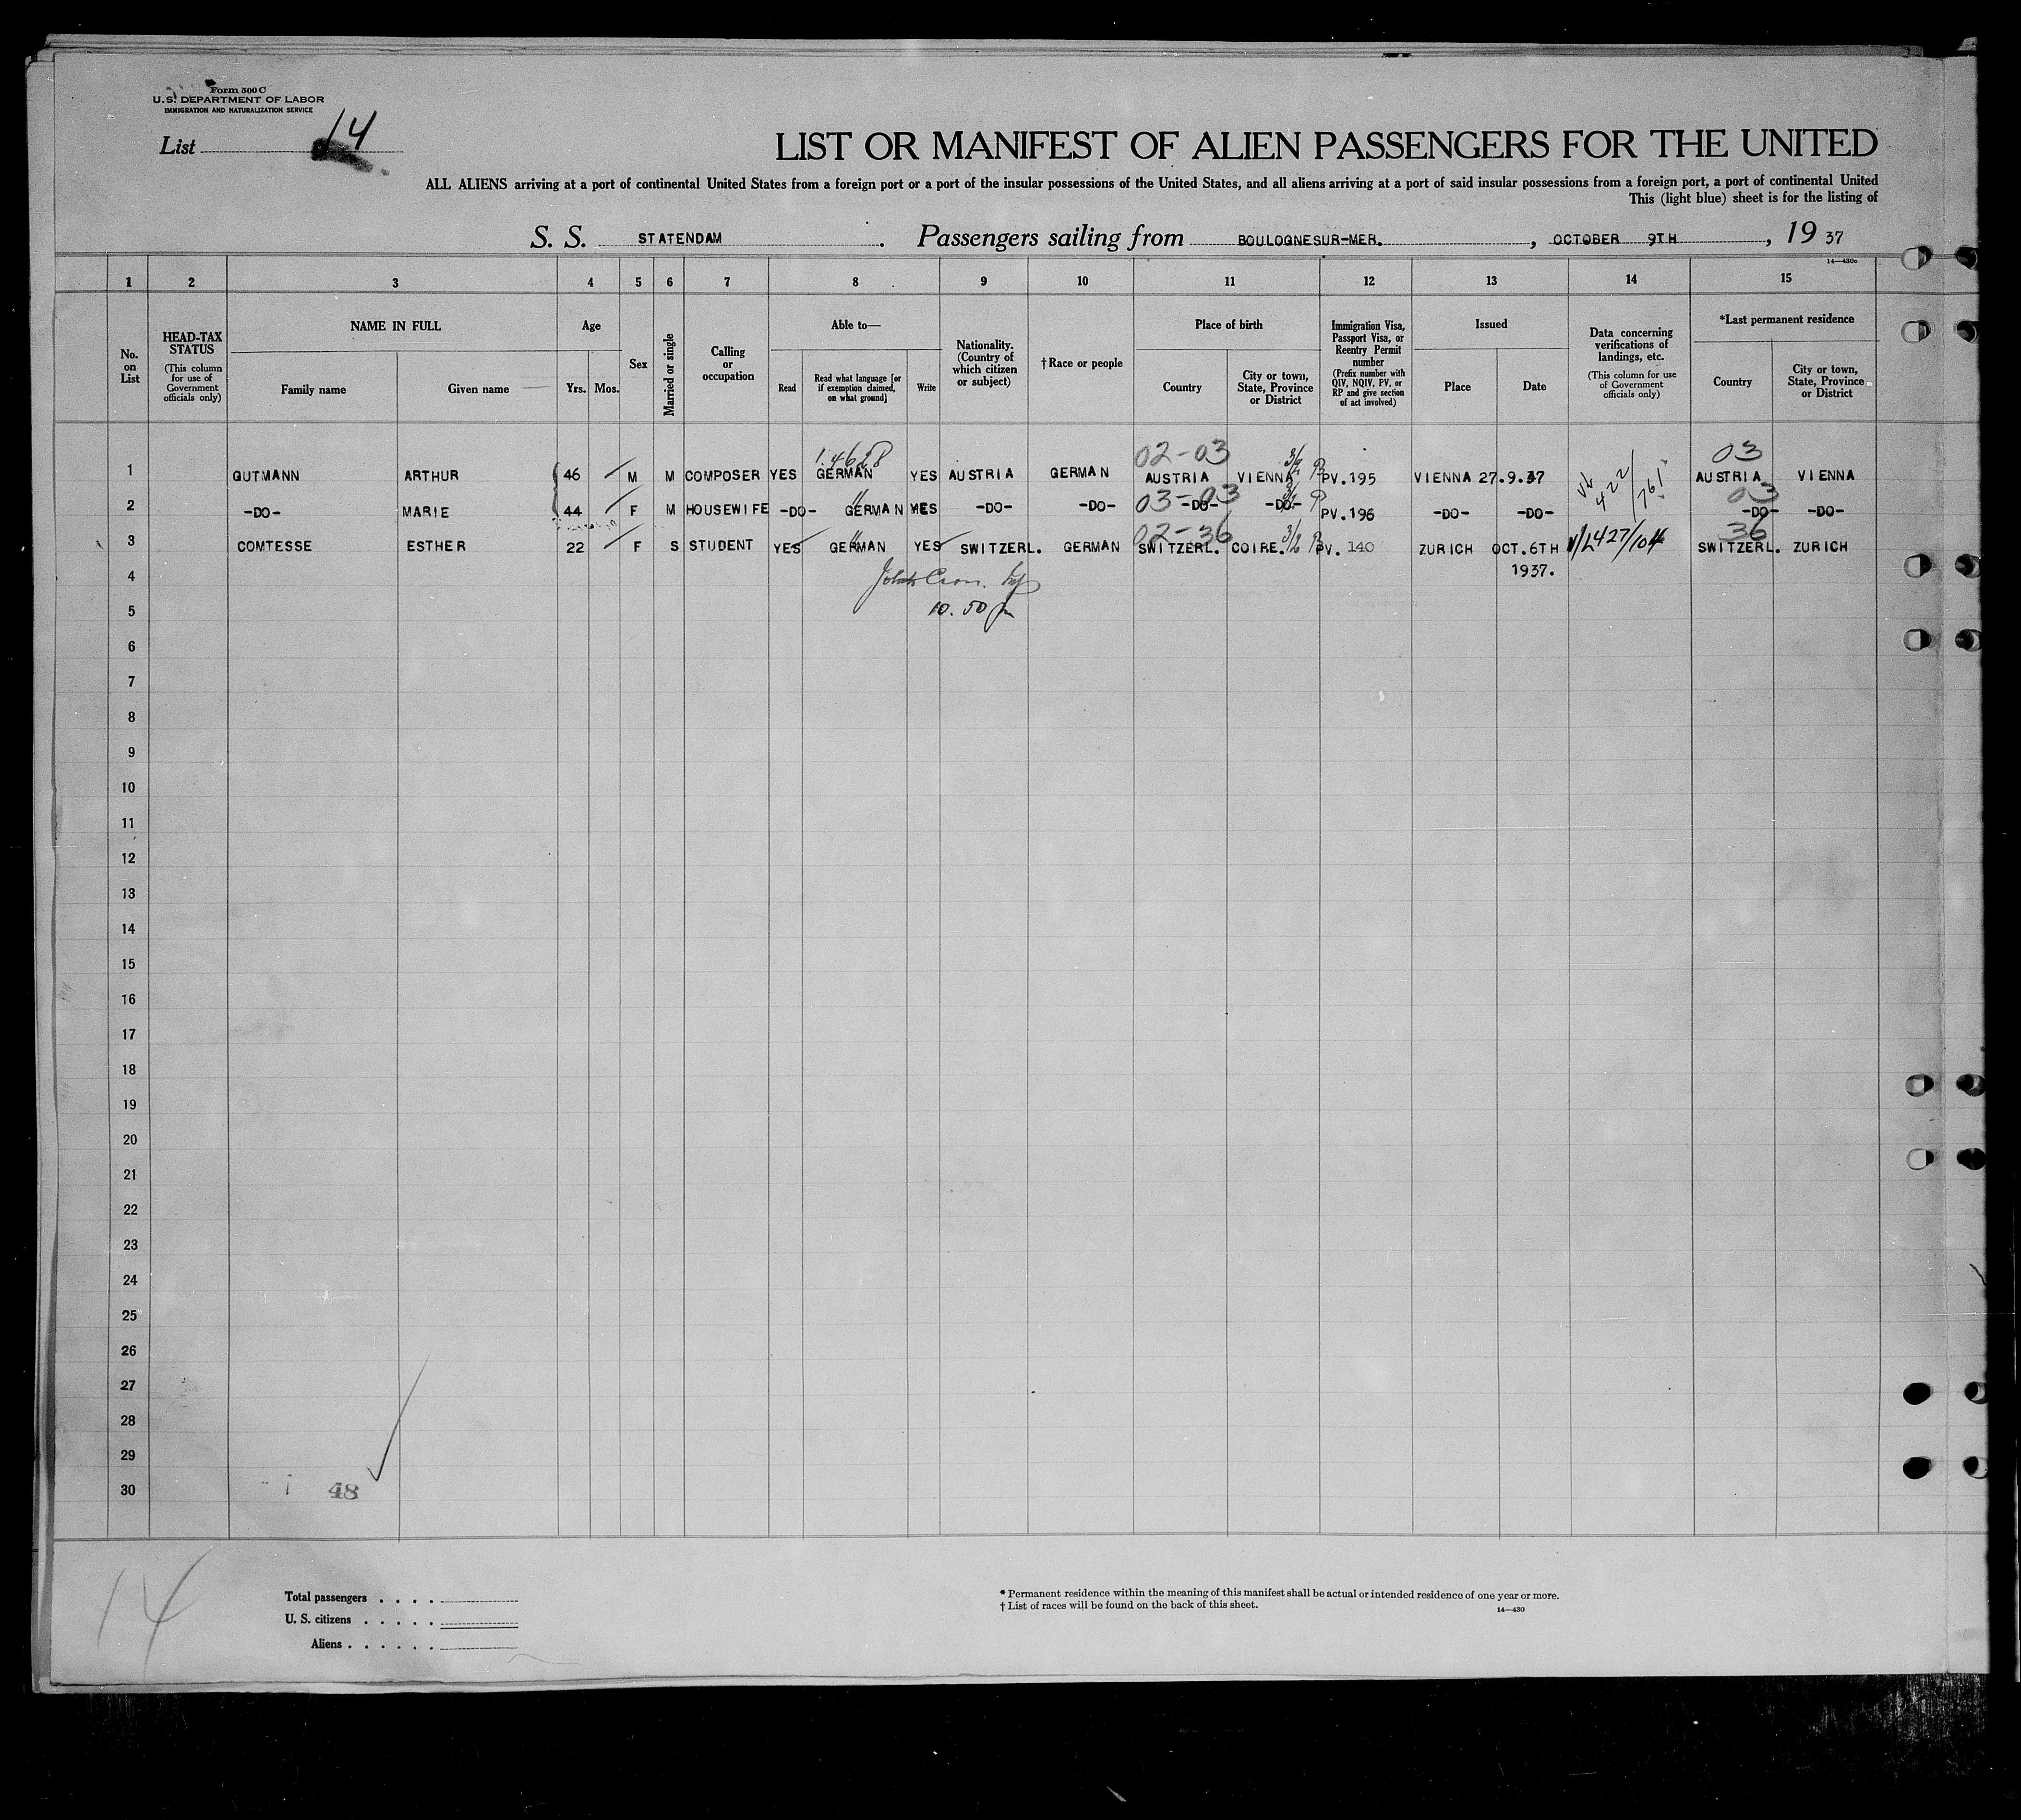 Form 500 C
U.S. DEPARTMENT OF LABOR
IMMIGRATION AND NATURALIZATION SERVICE
List 14
LIST OR MANIFEST OF ALIEN PASSENGERS FOR THE UNITED
ALL ALIENS arriving at a port of continental United States from a foreign port or a port of the insular possessions of the United States, and all aliens arriving at a port of said insular possessions from a foreign port, a port of continental United
This (light blue) sheet is for the listing of
S. S. STATENDAM . Passengers sailing from BOULOGNESUR-MER. , OCTOBER 9TH , 19 37
14—430c
1 2 3 4 5 6 7 8 9 10 11 12 13 14 15
No. on List
HEAD-TAX STATUS
(This column for use of Government officials only)
NAME IN FULL
Family name
Given name
Age
Yrs. Mos.
Sex
Married or single
Calling or occupation
Able to—
Read
Read what language [or if exemption claimed, on what ground]
Write
Nationality. (Country of which citizen or subject)
†Race or people
Place of birth
Country
City or town, State, Province or District
Immigration Visa, Passport Visa, or Reentry Permit number
(Prefix number with QIV, NQIV, PV, or RP and give section of act involved)
Issued
Place
Date
Data concerning verifications of landings, etc.
(This column for use of Government officials only)
*Last permanent residence
Country
City or town, State, Province or District
1.4628 02-03 3/2 03
1 GUTMANN ARTHUR 46 M M COMPOSER YES GERMAN YES AUSTRIA GERMAN AUSTRIA VIENNA PV.195 VIENNA 27.9.37 422/761 AUSTRIA VIENNA
" 03-03 03
2 -DO- MARIE 44 F M HOUSEWIFE -DO- GERMAN YES -DO- -DO- -DO- -DO- PV.196 -DO- -DO- -DO- -DO-
" 02-36 3/2 36
3 COMTESSE ESTHER 22 F S STUDENT YES GERMAN YES SWITZERL. GERMAN SWITZERL. COIRE. PV. 140 ZURICH OCT.6TH 427/104 SWITZERL. ZURICH
4 1937.
5 10.50
6
7
8
9
10
11
12
13
14
15
16
17
18
19
20
21
22
23
24
25
26
27
28
29
30 48
14
Total passengers . . . .
U. S. citizens . . . . .
Aliens . . . . . .
* Permanent residence within the meaning of this manifest shall be actual or intended residence of one year or more.
† List of races will be found on the back of this sheet.
14—430